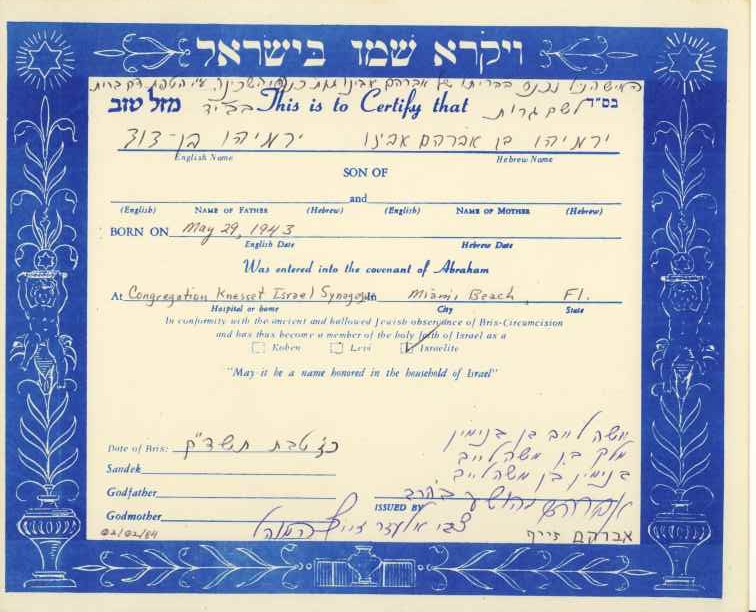 ויקרא שמו בישראל
האיש הנ"ל נכנס בבריתו של אברהם אבינו תחת כנפי השכינה ע"י הטפת דם ברית
מזל טוב בב"ד This is to Certify that לשם גרות בס"ד
ירמיהו בן-דוד ירמיהו בן אברהם אבינו
English Name Hebrew Name
SON OF
and
(English) NAME OF FATHER (Hebrew) (English) NAME OF MOTHER (Hebrew)
BORN ON May 29, 1943
English Date Hebrew Date
Was entered into the covenant of Abraham
At Congregation Knesset Israel Synagog In Miami Beach, Fl.
Hospital or home City State
In conformity with the ancient and hallowed Jewish observance of Bris-Circumcision
and has thus become a member of the holy faith of Israel as a
Kohen Levi Israelite
"May it be a name honored in the household of Israel"
משה לייב בן בנימין
מלך בן משה לייב
Date of Bris: כ"ט טבת תשד"ק
בנימין בן משה לייב
Sandek
Godfather
ISSUED BY אברהם יהושע
Godmother צבי אלעזר זייף המוהל
02/02/84 אברהם זייף